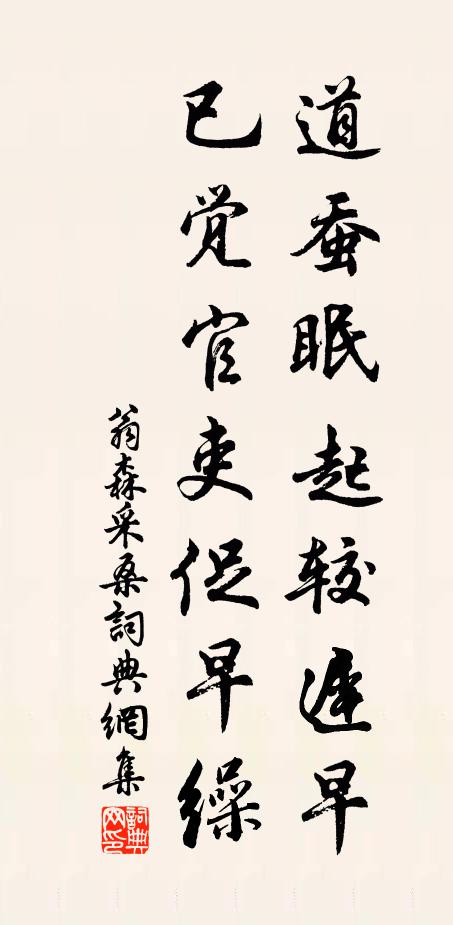 道蚕眠起较遲早
已觉官吏促早繰
翁森采桑詞典網集
詞典网印